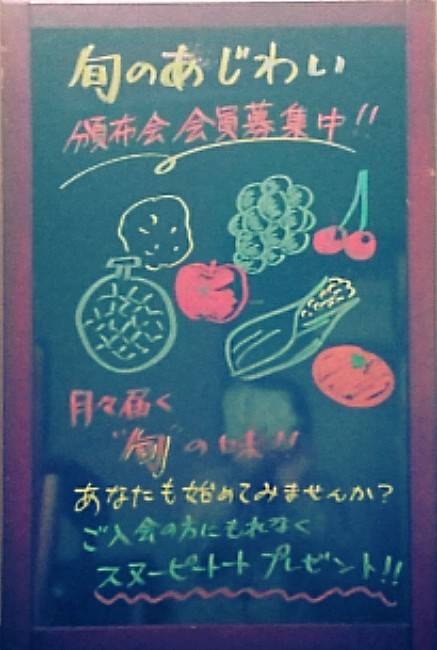 旬のあじわい
頒布会 会員募集中!!
月々届く
"旬"の味!!
あなたも始めてみませんか?
ご入会の方にもれなく
スヌーピートート プレゼント!!